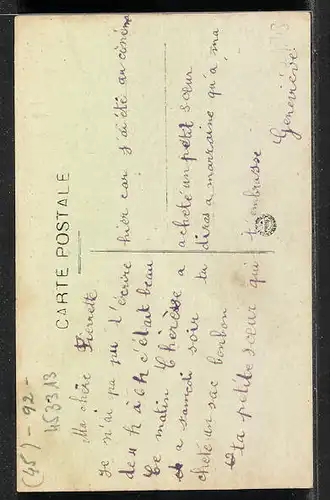 CARTE POSTALE
Ma chère Pierrette
Je n'ai pa pu t'écrire hier car j'ai été au cinéma
de 4 h à 6 h c'était beau
Ce matin Thérèse a acheté un petit sœur
a samedi soir tu diras a marraine qu'a ma
cheté un sac bonbon
ta petite sœur qui t'embrasse
Geneviève
(45) - 92 -
453313